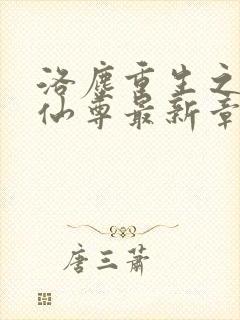 洛尘重生之
仙尊最新章
唐三萧